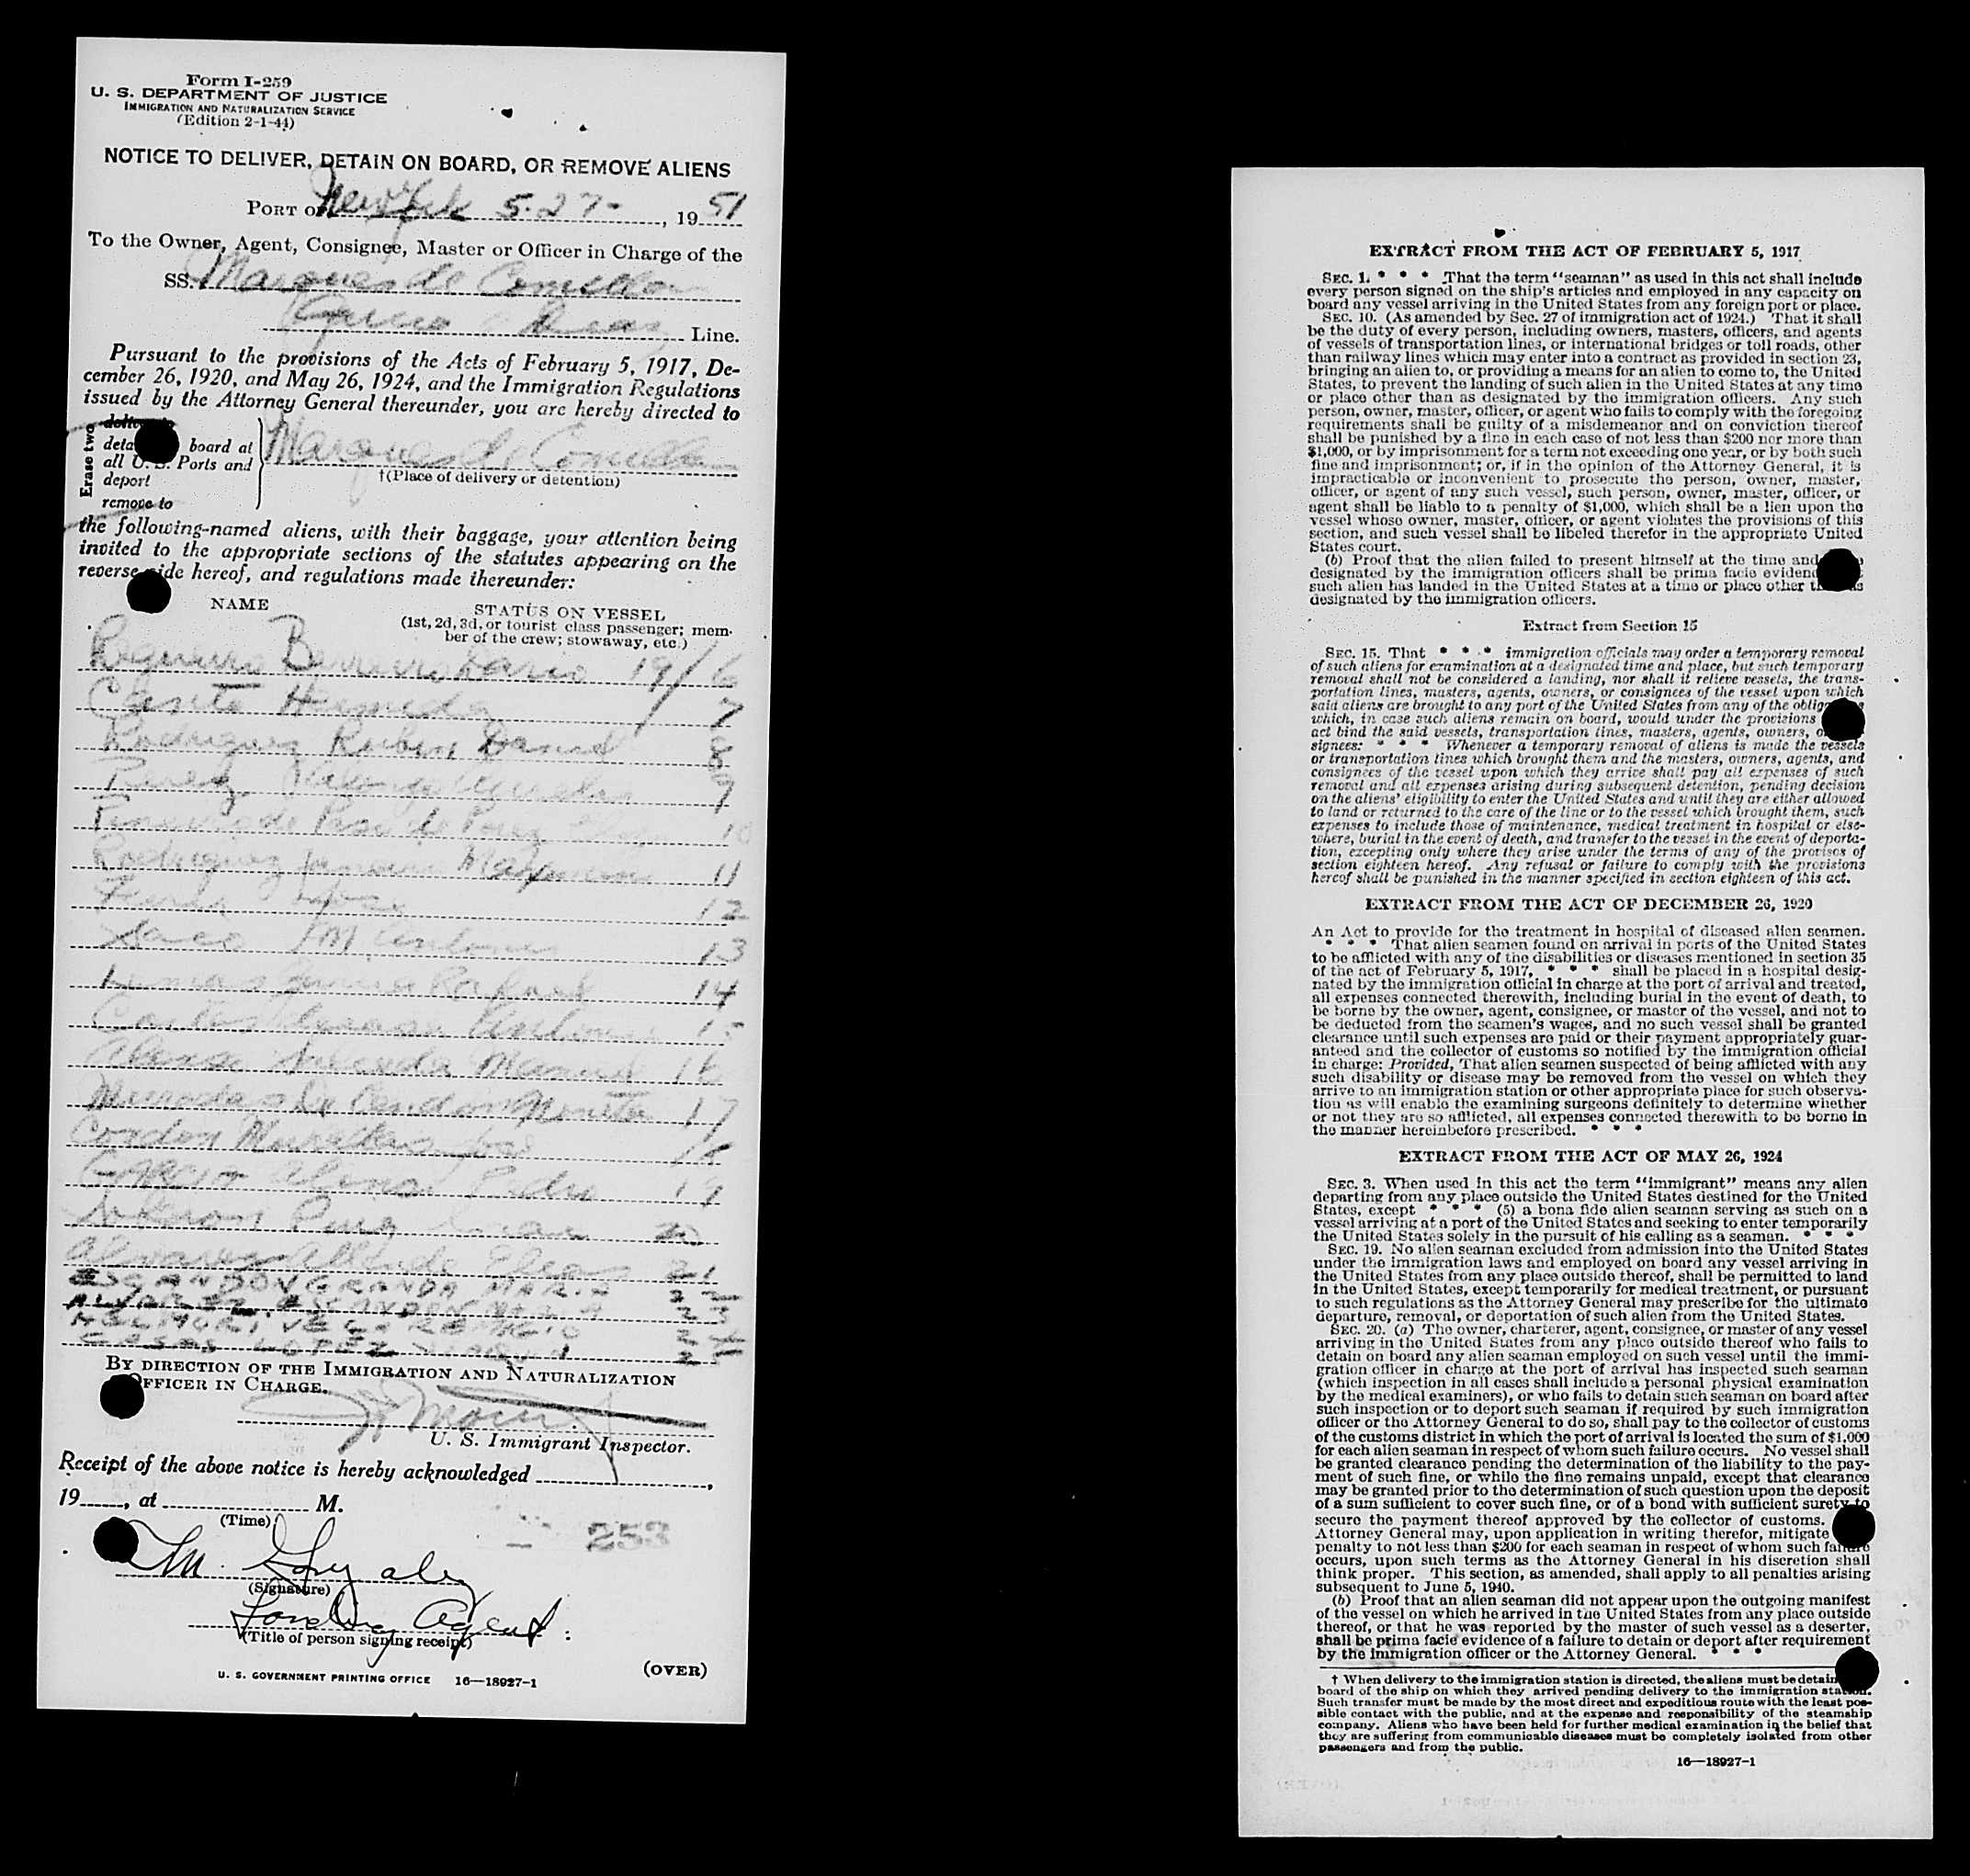 Form I-259
U. S. DEPARTMENT OF JUSTICE
IMMIGRATION AND NATURALIZATION SERVICE
(Edition 2-1-44)
NOTICE TO DELIVER, DETAIN ON BOARD, OR REMOVE ALIENS
PORT OF New York 5-27-, 19 51
To the Owner, Agent, Consignee, Master or Officer in Charge of the
SS. Marques de Comillas
Line.
Pursuant to the provisions of the Acts of February 5, 1917, De-
cember 26, 1920, and May 26, 1924, and the Immigration Regulations
issued by the Attorney General thereunder, you are hereby directed to
Erase two
board at
all U. S. Ports and
deport
remove to
Marques de Comillas
†(Place of delivery or detention)
the following-named aliens, with their baggage, your attention being
invited to the appropriate sections of the statutes appearing on the
reverse side hereof, and regulations made thereunder:
NAME
STATUS ON VESSEL
(1st, 2d, 3d, or tourist class passenger; mem-
ber of the crew; stowaway, etc.)
Regueiro Barreiro Dario 19/6
7
Rodriguez Rubin, 8
Perez 9
10
Rodriguez 11
12
13
Rafael 14
Antonio 15
Manuel 16
17
Jose 18
19
20
Alvarez 21
GRANDA 22
23
24
LOPEZ
BY DIRECTION OF THE IMMIGRATION AND NATURALIZATION
OFFICER IN CHARGE.
U. S. Immigrant Inspector.
Receipt of the above notice is hereby acknowledged
19, at M.
(Time)
253
M. Gonzalez
(Signature)
Landing Agent
(Title of person signing receipt)
(OVER)
U. S. GOVERNMENT PRINTING OFFICE 16—18927-1
EXTRACT FROM THE ACT OF FEBRUARY 5, 1917
SEC. 1. * * * That the term "seaman" as used in this act shall include
every person signed on the ship's articles and employed in any capacity on
board any vessel arriving in the United States from any foreign port or place.
SEC. 10. (As amended by Sec. 27 of immigration act of 1924.) That it shall
be the duty of every person, including owners, masters, officers, and agents
of vessels of transportation lines, or international bridges or toll roads, other
than railway lines which may enter into a contract as provided in section 23,
bringing an alien to, or providing a means for an alien to come to, the United
States, to prevent the landing of such alien in the United States at any time
or place other than as designated by the immigration officers. Any such
person, owner, master, officer, or agent who fails to comply with the foregoing
requirements shall be guilty of a misdemeanor and on conviction thereof
shall be punished by a fine in each case of not less than $200 nor more than
$1,000, or by imprisonment for a term not exceeding one year, or by both such
fine and imprisonment; or, if in the opinion of the Attorney General, it is
impracticable or inconvenient to prosecute the person, owner, master,
officer, or agent of any such vessel, such person, owner, master, officer, or
agent shall be liable to a penalty of $1,000, which shall be a lien upon the
vessel whose owner, master, officer, or agent violates the provisions of this
section, and such vessel shall be libeled therefor in the appropriate United
States court.
(b) Proof that the alien failed to present himself at the time and
designated by the immigration officers shall be prima facie
such alien has landed in the United States at a time or place other
designated by the immigration officers.
Extract from Section 15
SEC. 15. That * * * immigration officials may order a temporary removal
of such aliens for examination at a designated time and place, but such temporary
removal shall not be considered a landing, nor shall it relieve vessels, the trans-
portation lines, masters, agents, owners, or consignees of the vessel upon which
said aliens are brought to any port of the United States from any of the
which, in case such aliens remain on board, would under the provisions
act bind the said vessels, transportation lines, masters, agents, owners,
signees: * * * Whenever a temporary removal of aliens is made the vessels
or transportation lines which brought them and the masters, owners, agents, and
consignees of the vessel upon which they arrive shall pay all expenses of such
removal and all expenses arising during subsequent detention, pending decision
on the aliens' eligibility to enter the United States and until they are either allowed
to land or returned to the care of the line or to the vessel which brought them, such
expenses to include those of maintenance, medical treatment in hospital or else-
where, burial in the event of death, and transfer to the vessel in the event of deporta-
tion, excepting only where they arise under the terms of any of the provisos of
section eighteen hereof. Any refusal or failure to comply with the provisions
hereof shall be punished in the manner specified in section eighteen of this act.
EXTRACT FROM THE ACT OF DECEMBER 26, 1920
An Act to provide for the treatment in hospital of diseased alien seamen.
* * * That alien seamen found on arrival in ports of the United States
to be afflicted with any of the disabilities or diseases mentioned in section 35
of the act of February 5, 1917, * * * shall be placed in a hospital desig-
nated by the immigration official in charge at the port of arrival and treated,
all expenses connected therewith, including burial in the event of death, to
be borne by the owner, agent, consignee, or master of the vessel, and not to
be deducted from the seamen's wages, and no such vessel shall be granted
clearance until such expenses are paid or their payment appropriately guar-
anteed and the collector of customs so notified by the immigration official
in charge: Provided, That alien seamen suspected of being afflicted with any
such disability or disease may be removed from the vessel on which they
arrive to an immigration station or other appropriate place for such observa-
tion as will enable the examining surgeons definitely to determine whether
or not they are so afflicted, all expenses connected therewith to be borne in
the manner hereinbefore prescribed. * * *
EXTRACT FROM THE ACT OF MAY 26, 1924
SEC. 3. When used in this act the term "immigrant" means any alien
departing from any place outside the United States destined for the United
States, except * * * (5) a bona fide alien seaman serving as such on a
vessel arriving at a port of the United States and seeking to enter temporarily
the United States solely in the pursuit of his calling as a seaman. * * *
SEC. 19. No alien seaman excluded from admission into the United States
under the immigration laws and employed on board any vessel arriving in
the United States from any place outside thereof, shall be permitted to land
in the United States, except temporarily for medical treatment, or pursuant
to such regulations as the Attorney General may prescribe for the ultimate
departure, removal, or deportation of such alien from the United States.
SEC. 20. (a) The owner, charterer, agent, consignee, or master of any vessel
arriving in the United States from any place outside thereof who fails to
detain on board any alien seaman employed on such vessel until the immi-
gration officer in charge at the port of arrival has inspected such seaman
(which inspection in all cases shall include a personal physical examination
by the medical examiners), or who fails to detain such seaman on board after
such inspection or to deport such seaman if required by such immigration
officer or the Attorney General to do so, shall pay to the collector of customs
of the customs district in which the port of arrival is located the sum of $1,000
for each alien seaman in respect of whom such failure occurs. No vessel shall
be granted clearance pending the determination of the liability to the pay-
ment of such fine, or while the fine remains unpaid, except that clearance
may be granted prior to the determination of such question upon the deposit
of a sum sufficient to cover such fine, or of a bond with sufficient surety to
secure the payment thereof approved by the collector of customs.
Attorney General may, upon application in writing therefor, mitigate
penalty to not less than $200 for each seaman in respect of whom such failure
occurs, upon such terms as the Attorney General in his discretion shall
think proper. This section, as amended, shall apply to all penalties arising
subsequent to June 5, 1940.
(b) Proof that an alien seaman did not appear upon the outgoing manifest
of the vessel on which he arrived in the United States from any place outside
thereof, or that he was reported by the master of such vessel as a deserter,
shall be prima facie evidence of a failure to detain or deport after requirement
by the immigration officer or the Attorney General. * * *
† When delivery to the immigration station is directed, the aliens must be
board of the ship on which they arrived pending delivery to the immigration station.
Such transfer must be made by the most direct and expeditious route with the least pos-
sible contact with the public, and at the expense and responsibility of the steamship
company. Aliens who have been held for further medical examination in the belief that
they are suffering from communicable diseases must be completely isolated from other
passengers and from the public.
16—18927-1